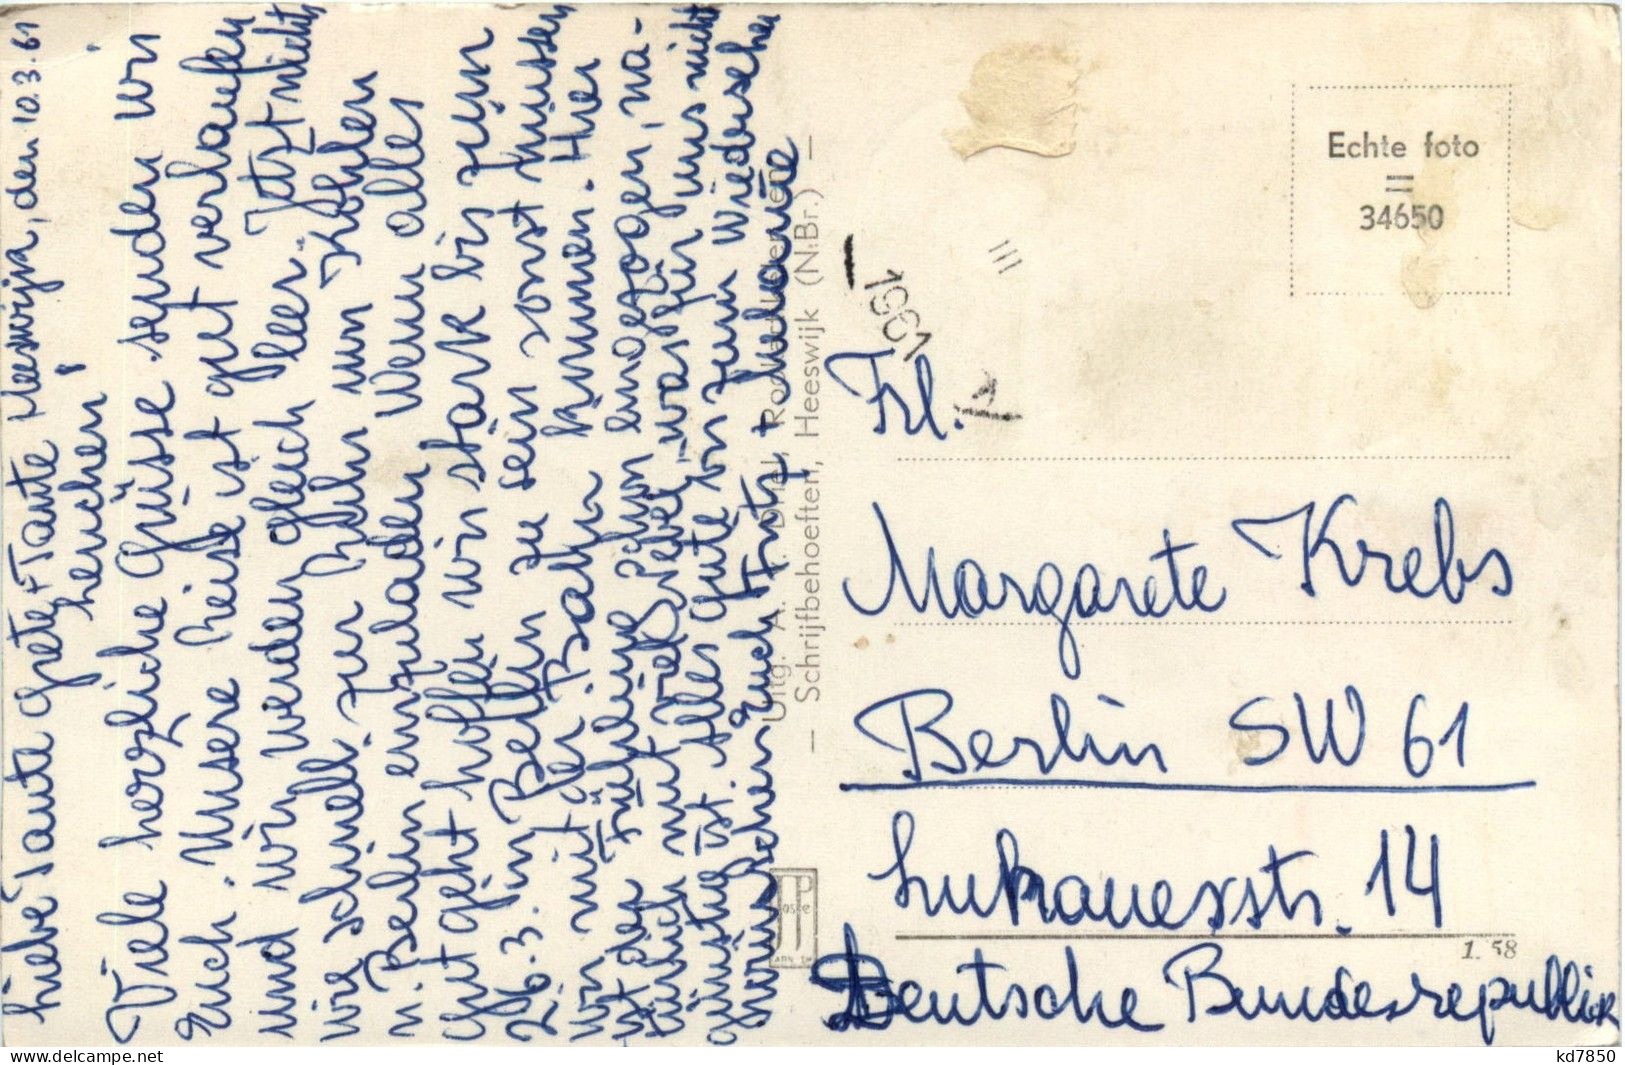 Meeswijk, den 10.3.61
Liebe Tante Grete + Tante
Lenchen!
Viele herzliche Grüsse senden wir
Euch. Unsere Reise ist gut verlaufen
und wir werden gleich leer. Jetzt nichts
wie schnell zur Ruhr um Kohlen
n. Berlin einzuladen. Wenn alles
gut geht hoffen wir stark bis zum
26.3. in Berlin zu sein sonst müssen
wir mit der Bahn kommen. Hier
ist der Frühling schon eingezogen, na-
türlich mit viel Nebel, was für uns nicht
günstig ist. Alles Gute von zum Wiedersehen
wünschen Euch Fritz + Melanie
Uitg. A. v. Driel,
— Schrijfbehoeften, Heeswijk (N.Br.) —
Echte foto
II
34650
III
1961
Frl.
Margarete Krebs
Berlin SW 61
Deutsche Bundesrepublik
14
1.58
www.delcampe.net
kd7850